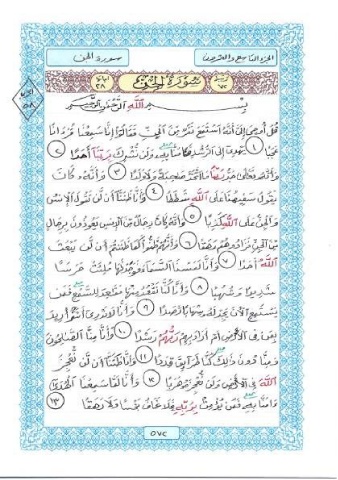 الجزء التاسع والعشرون
سورة الجن
٧٢
سورة الجن
٢٨
٥٨
بسم الله الرحمن الرحيم
قل أوحي إلي أنه استمع نفر من الجن فقالوا إنا سمعنا قرءانا
عجبا ١ يهدي إلى الرشد فـٔامنا به ولن نشرك بربنا أحدا ٢
وأنه تعلى جد ربنا ما اتخذ صحبة ولا ولدا ٣ وأنه كان
يقول سفيهنا على الله شططا ٤ وأنا ظننا أن لن تقول الإنس
والجن على الله كذبا ٥ وأنه كان رجال من الإنس يعوذون برجال
من الجن فزادوهم رهقا ٦ وأنهم ظنوا كما ظننتم أن لن يبعث
الله أحدا ٧ وأنا لمسنا السماء فوجدنها ملئت حرسا
شديدا وشهبا ٨ وأنا كنا نقعد منها مقعد للسمع فمن
يستمع الآن يجد له شهابا رصدا ٩ وأنا لا ندري أشر أريد
بمن في الأرض أم أراد بهم ربهم رشدا ١٠ وأنا منا الصلحون
ومنا دون ذلك كنا طرائق قددا ١١ وأنا ظننا أن لن نعجز
الله في الأرض ولن نعجزه هربا ١٢ وأنا لما سمعنا الهدى
ءامنا به فمن يؤمن بربه فلا يخاف بخسا ولا رهقا ١٣
٥٧٢